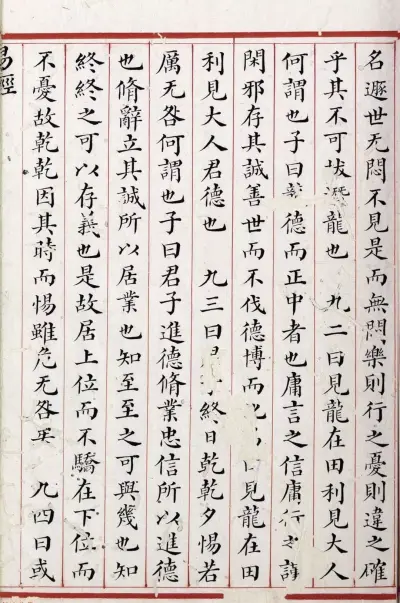 名遯世无悶不見是而無悶樂則行之憂則違之確
乎其不可拔潛龍也 九二曰見龍在田利見大人
何謂也子曰德而正中者也庸言之信庸行之謹
閑邪存其誠善世而不伐德博而見龍在田
利見大人君德也 九三曰終日乾乾夕惕若
厲无咎何謂也子曰君子進德脩業忠信所以進德
也脩辭立其誠所以居業也知至至之可與幾也知
終終之可以存義也是故居上位而不驕在下位而
不憂故乾乾因其時而惕雖危无咎矣 九四曰或
易經